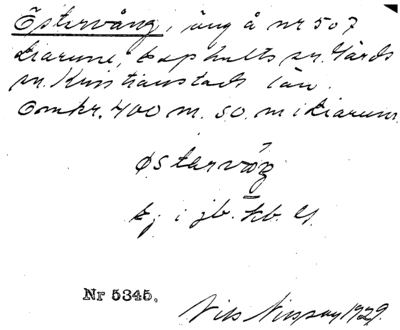 Östervång, äng å nr 507
Liarum, Esphults sn. Gärds
hd. Kristianstads län.
Omkr. 400 m. SO. m i Liarum
østarvåŋ
Ej i jb. kb. el.
Nr 5345.
Nils Nilsson 1929.